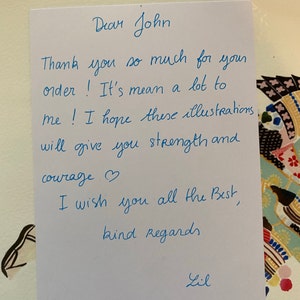 Dear John
Thank you so much for your
order ! It's mean a lot to
me ! I hope these illustrations
will give you strength and
courage ♡
I wish you all the Best,
kind regards
Lil